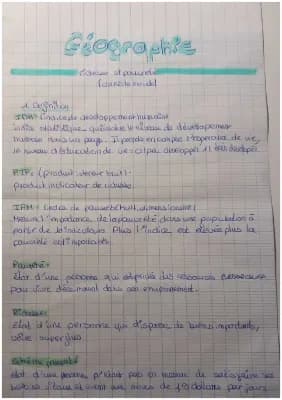 Géographie
richesse et pauvreté
dans le monde
1. Définition
IDH : Indice de développement humain
indice statistique, qui évalue le niveau de développement
humain dans un pays. Il prend en compte l'espérance de vie,
le niveau d'éducation de vie
PIB : (produit intérieur brut) -
produit indicateur de richesse.
IPM : (indice de pauvreté multidimensionnel)
Mesure l'importance de la pauvreté dans une population à
partir de Plus l'indice est élevée plus la
pauvreté est importante
Pauvreté :
État d'une personne qui est privée des ressources
pour vivre décemment dans son environnement.
Richesse :
État d'une personne qui dispose de biens importants,
voire superflus
Extrême pauvreté
état d'une personne n'étant pas en mesure de satisfaire ses
besoins vitaux et vivant avec moins de 1,9 dollars par jours.